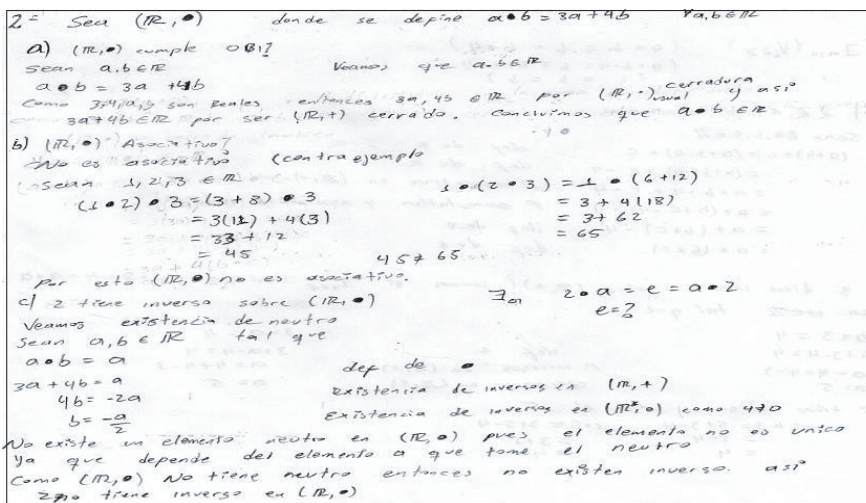 2= Sea (IR, •) donde se define a•b = 3a+4b ∀a,b∈IR
a) (IR,•) cumple OBI?
Sean a,b∈IR Veamos que a•b∈IR
a•b = 3a +4b
Como 3,4,a,b son Reales, entonces 3a, 4b ∈IR por (IR,·) usual cerradura y así
3a+4b∈IR por ser (IR,+) cerrado. Concluimos que a•b ∈IR
b) (IR,•) Asociativo?
No es asociativo (contra ejemplo
Sean 1,2,3 ∈IR
(1•2)•3 = (3+8)•3 1•(2•3) = 1•(6+12)
= 3(11) + 4(3) = 3 + 4(18)
= 33 + 12 = 3+ 62
= 45 = 65
45 ≠ 65
por esto (IR,•) no es asociativo.
c/ 2 tiene inverso sobre (IR,•) 2•a = e = a•2
Veamos existencia de neutro e=?
Sean a,b ∈IR tal que
a•b = a
3a+4b = a def de •
4b = -2a Existencia de inversos en (IR,+)
b = -a/2 existencia de inversos en (IR*,•) como 4≠0
No existe un elemento neutro en (IR,•) pues el elemento no es unico
Ya que depende del elemento a que tome el neutro
Como (IR,•) No tiene neutro entonces no existen inverso. así
2 no tiene inverso en (IR,•)